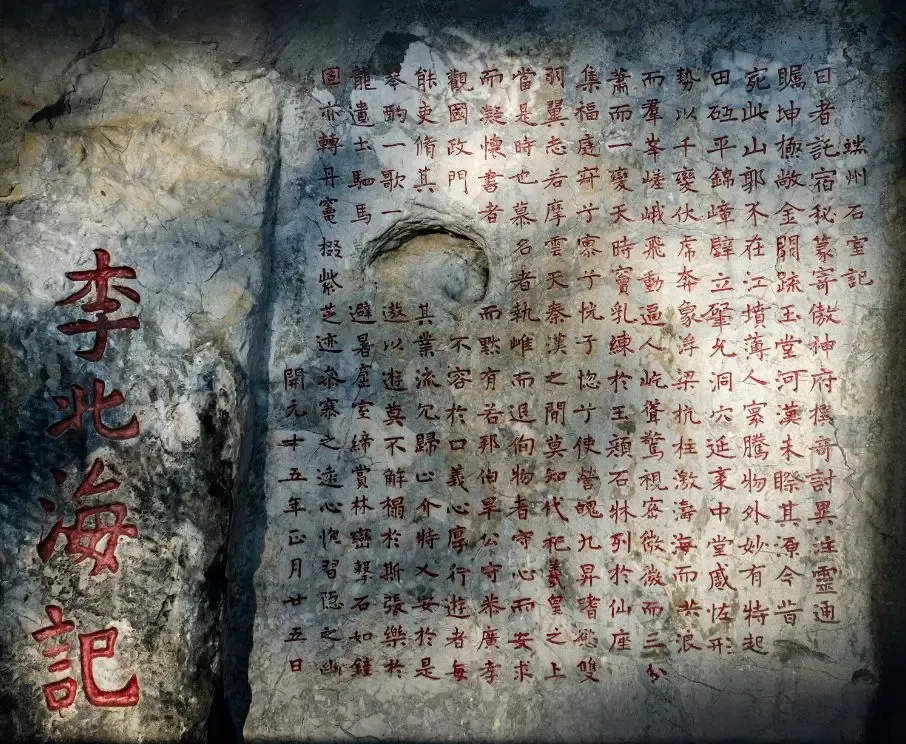 端州石室記
日者託宿秘篆寄傲神府樸哥討異注靈通
矚坤極敞金闕踈玉堂河漢未賒其源今昔
宛此山郭不在江墳薄人寰騰物外妙有特起
田砥平錦嶂壁立肇允洞穴延袤中堂感怪形
勢以千變伏虎奔象浮梁抗柱激海海而共浪
而羣峯嵯峨飛動逼人屹聳驚視密微微而三分
蕭而一變天時竇乳練於玉頹石牀列於仙座
集福庭寥兮恍兮惚兮使營魄九昇嗜慾雙
羽翼志若摩雲天秦漢之間莫知代祀羲皇之上
當是時也慕名者執雌而退徇物者守心而安求
而凝懷書者而黙有若邦伯畢公守恭廣孝
觀國政門不容於口義心厚行遊者每
能吏脩其其業流冗歸心介特乂安於是
琴酌一歌一遨以遊莫不解榻於斯張樂於
龍遺士駟馬避暑虛室締賞林巒擊石如鍾
固亦轉丹竈掇紫芝迹參寥之遠心怡習隠之幽
開元十五年正月廿五日
李北海記